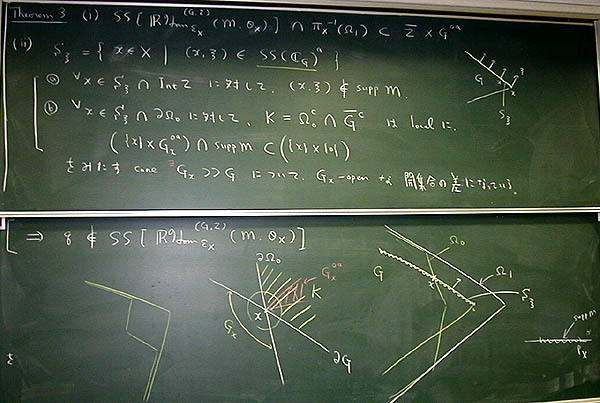 Theorem 3 (i) SS[ℝHom_{ℰ_X}^{(G,Z)}(m, 𝒪_X)] ∩ π_X^{-1}(Ω_1) ⊂ Z × G^{oa}
(ii) S_ξ = { x ∈ X | (x, ξ) ∈ SS(ℂ_G)^a }
ⓐ ∀x ∈ S_ξ ∩ Int Z に対して, (x, ξ) ∉ supp m.
ⓑ ∀x ∈ S_ξ ∩ ∂Ω_0 に対して, K = Ω_0^c ∩ G^c は local に
({x} × G_x^{oa}) ∩ supp m ⊂ ({x} × {0})
cone ∃G_x >> G について, G_x-open 開集合の
[ ⇒ q ∉ SS[ℝHom_{ℰ_X}^{(G,Z)}(m, 𝒪_X)]
G
ξ
x
S_ξ
∂Ω_0
G_x^{oa}
K
x
G_x
∂G
G
Ω_0
Ω_1
x
S_ξ
supp m
P_X